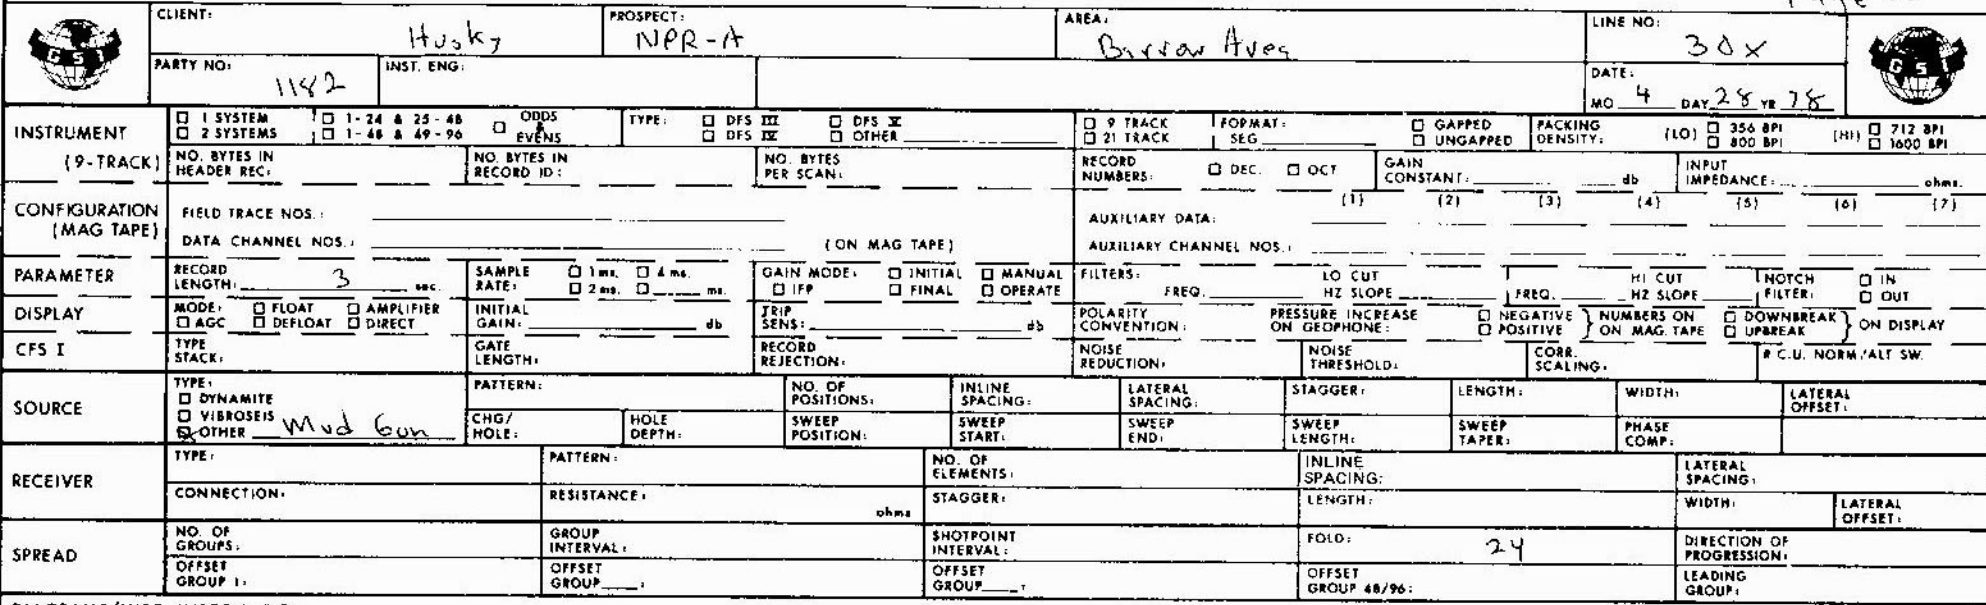 CLIENT: Husky PROSPECT: NPR-A AREA: Barrow Area LINE NO: 30X
GSI GSI
PARTY NO: 1182 INST. ENG: DATE: MO 4 DAY 28 YR 78
INSTRUMENT (9-TRACK) 1 SYSTEM 1-24 & 25-48 ODDS & EVENS TYPE: DFS III DFS V 9 TRACK FORMAT: GAPPED PACKING DENSITY: (LO) 356 BPI (HI) 712 BPI
2 SYSTEMS 1-48 & 49-96 DFS IV OTHER 21 TRACK SEG UNGAPPED 800 BPI 1600 BPI
NO. BYTES IN HEADER REC: NO. BYTES IN RECORD ID: NO. BYTES PER SCAN: RECORD NUMBERS: DEC. OCT GAIN CONSTANT: db INPUT IMPEDANCE: ohms.
CONFIGURATION (MAG TAPE) (1) (2) (3) (4) (5) (6) (7)
FIELD TRACE NOS.: AUXILIARY DATA:
DATA CHANNEL NOS.: (ON MAG TAPE) AUXILIARY CHANNEL NOS.:
PARAMETER RECORD LENGTH: 3 sec. SAMPLE RATE: 1 ms. 4 ms. 2 ms. ms. GAIN MODE: INITIAL MANUAL IFP FINAL OPERATE FILTERS: FREQ. LO CUT HZ SLOPE FREQ. HI CUT HZ SLOPE NOTCH FILTER: IN OUT
DISPLAY MODE: FLOAT AMPLIFIER AGC DEFLOAT DIRECT INITIAL GAIN: db TRIP SENS: db POLARITY CONVENTION: PRESSURE INCREASE ON GEOPHONE: NEGATIVE POSITIVE NUMBERS ON ON MAG. TAPE DOWNBREAK UPBREAK ON DISPLAY
CFS I TYPE STACK: GATE LENGTH: RECORD REJECTION: NOISE REDUCTION: NOISE THRESHOLD: CORR. SCALING: R.C.U. NORM./ALT SW.
SOURCE TYPE: DYNAMITE VIBROSEIS OTHER Mud Gun PATTERN: NO. OF POSITIONS: INLINE SPACING: LATERAL SPACING: STAGGER: LENGTH: WIDTH: LATERAL OFFSET:
CHG/HOLE: HOLE DEPTH: SWEEP POSITION: SWEEP START: SWEEP END: SWEEP LENGTH: SWEEP TAPER: PHASE COMP:
RECEIVER TYPE: PATTERN: NO. OF ELEMENTS: INLINE SPACING: LATERAL SPACING:
CONNECTION: RESISTANCE: ohms STAGGER: LENGTH: WIDTH: LATERAL OFFSET:
SPREAD NO. OF GROUPS: GROUP INTERVAL: SHOTPOINT INTERVAL: FOLD: 24 DIRECTION OF PROGRESSION:
OFFSET GROUP 1: OFFSET GROUP : OFFSET GROUP : OFFSET GROUP 48/96: LEADING GROUP: